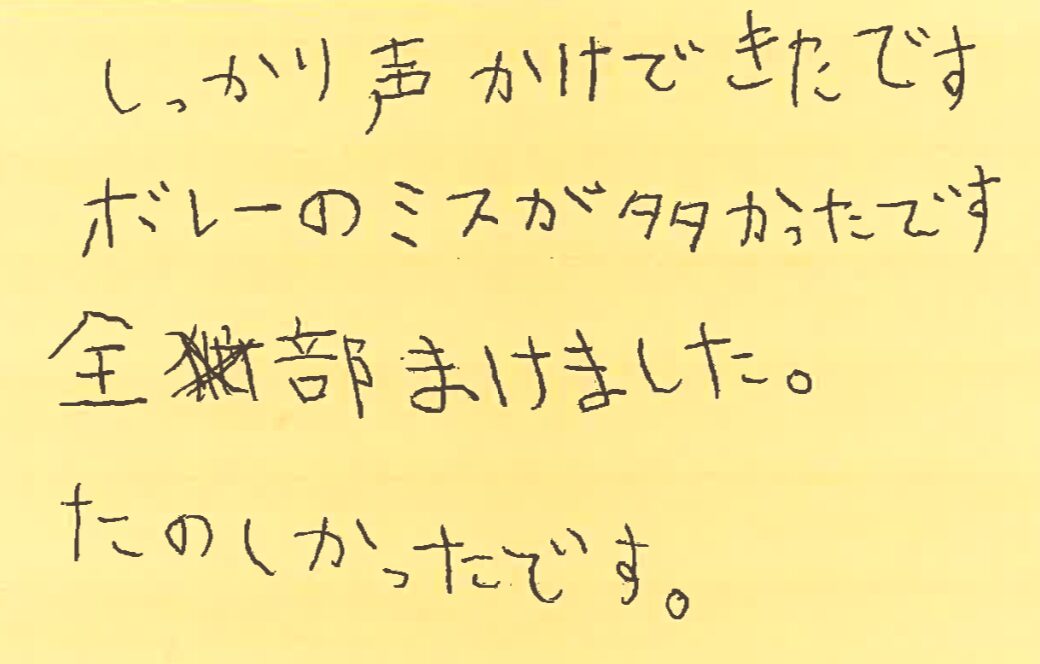 しっかり声かけできたです
ボレーのミスが多かったです
全部まけました。
たのしかったです。